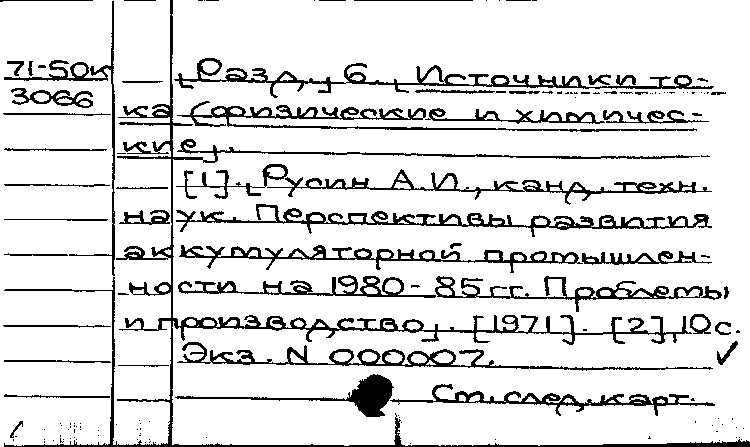 71-50к
3066
[Разд.] 6. [Источники то-
ка (физические и химичес-
кие].
[1]. [Русин А.И., канд. техн.
наук. Перспективы развития
аккумуляторной промышлен-
ности на 1980-85 гг. Проблемы
и производство]. [1971]. [2], 10 с.
Экз. N 000007.
См. след. карт.